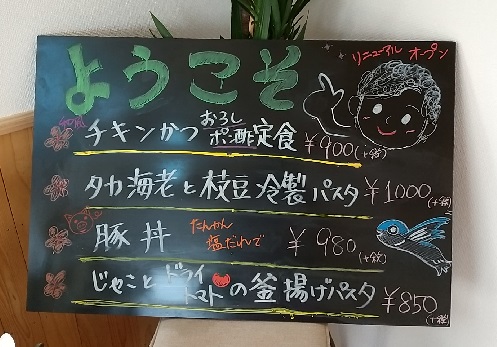 ようこそ
リニューアル オープン
チキンかつ おろしポン酢定食 ¥900(+税)
タカ海老と枝豆冷製パスタ ¥1000(+税)
豚丼 たんかん塩だれで ¥980(+税)
じゃことドライトマトの釜揚げパスタ ¥850(+税)